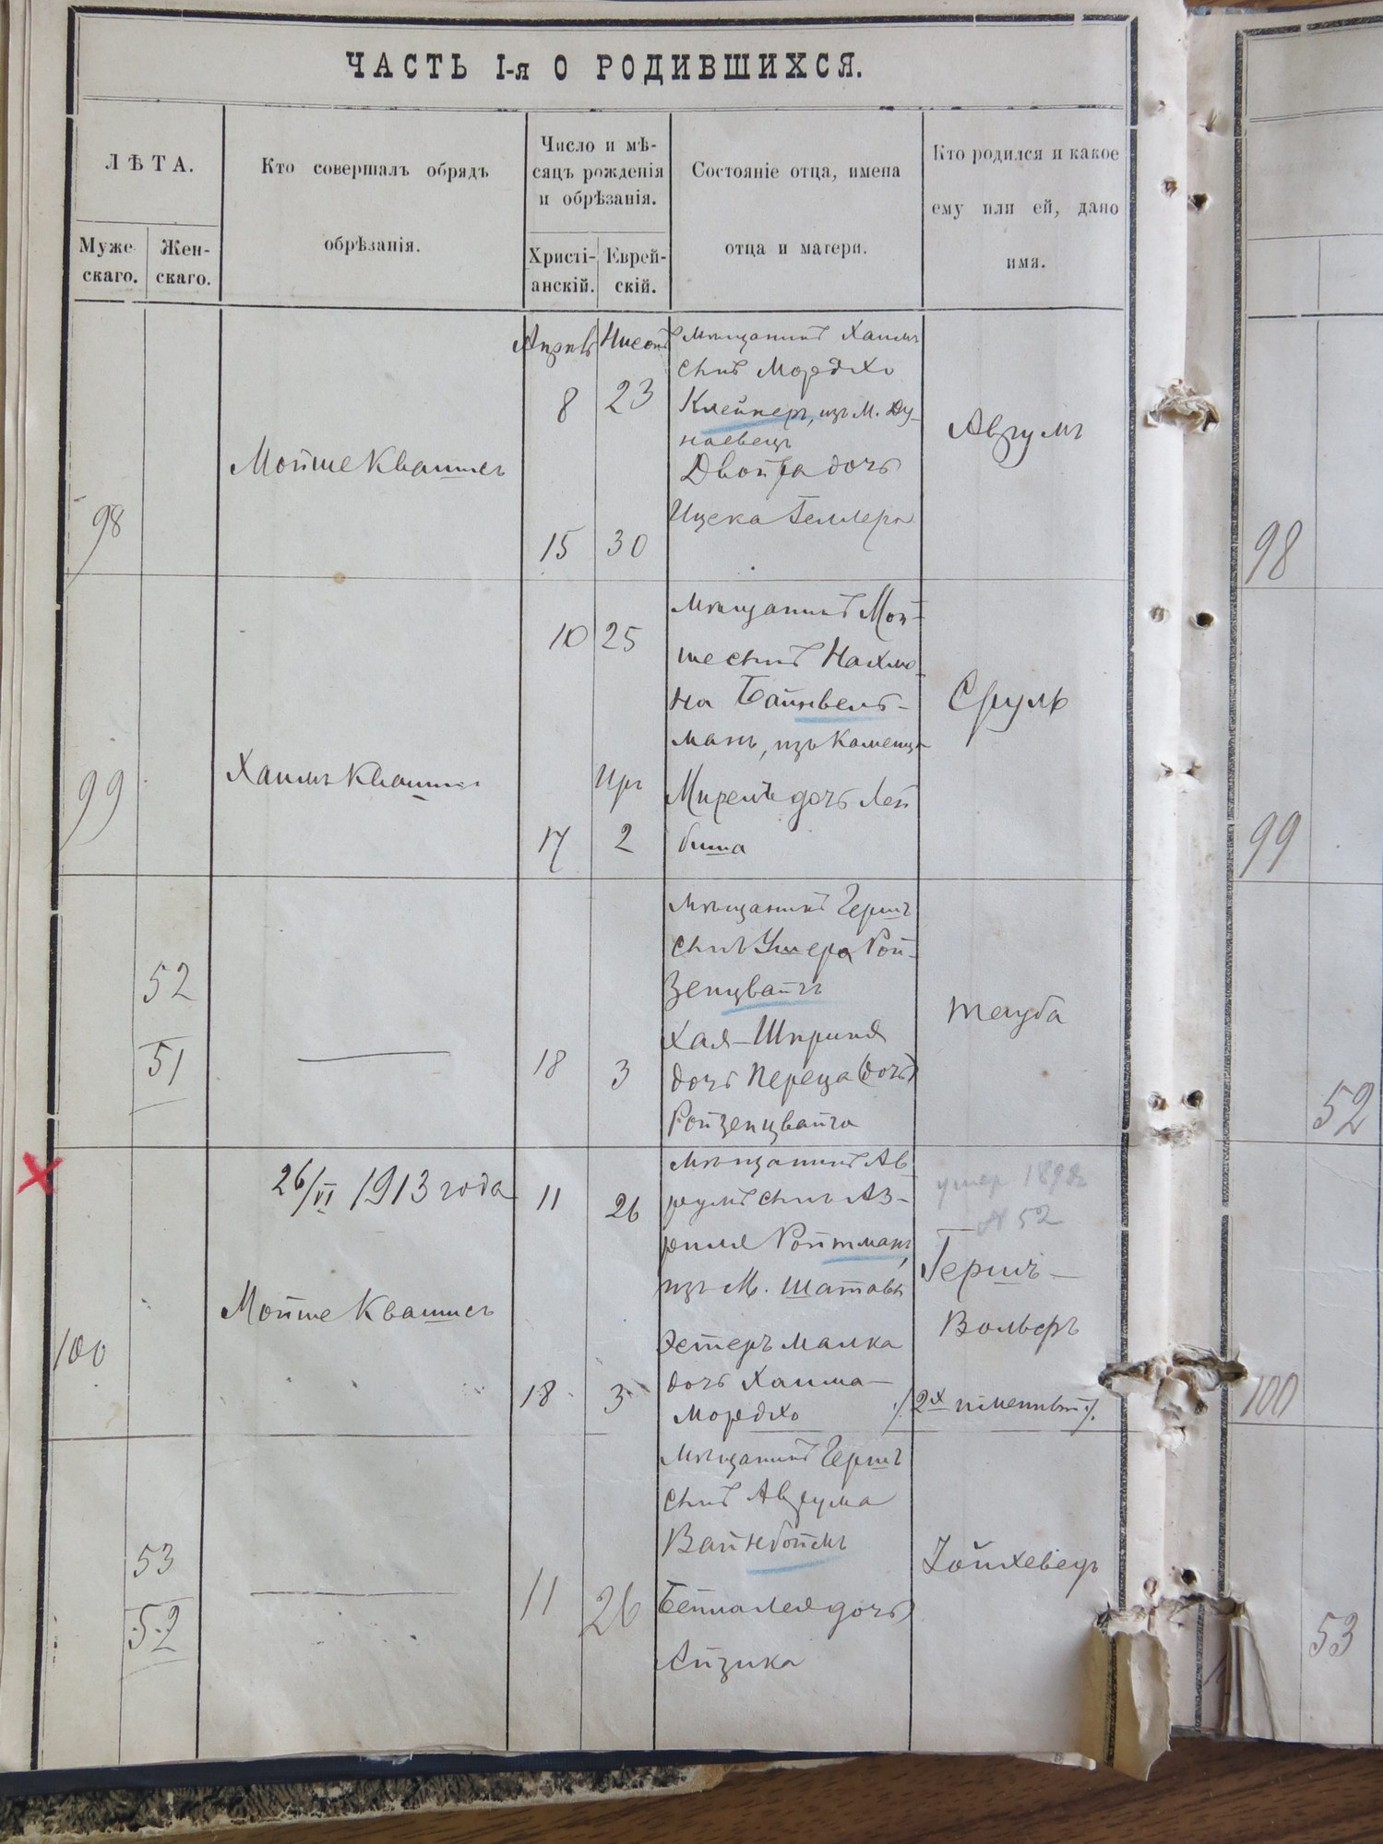 ЧАСТЬ I-я О РОДИВШИХСЯ.
ЛѢТА.
Муже-
скаго.
Жен-
скаго.
Кто совершалъ обрядъ
обрѣзанія.
Число и мѣ-
сяцъ рожденія
и обрѣзанія.
Христі-
анскій.
Еврей-
скій.
Состояніе отца, имена
отца и матери.
Кто родился и какое
ему или ей, дано
имя.
98
Мойше Квашис
8
23
15
30
Мѣщанинъ Хаимъ
сынъ Мордхо
Клейнеръ, изъ М. Ду-
наевецъ
Двойра дочь
Ицека Геллера
Аврумъ
99
Хаимъ
10
25
Ияр
17
2
Мѣщанинъ Мой-
ше сынъ Нахма-
на Байнвель-
манъ, изъ Каменца
Мирель дочь Лей
биша
Сруль
52
51
18
3
Мѣщанинъ Гершъ
сынъ Ушера Рой-
зенцвайгъ
Хая-Шприня
дочь Переца (дочь)
Ройзенцвайга
Тауба
100
26/VI 1913 года
Мойше Квашис
11
26
18
3
Мѣщанинъ Ав
румъ сынъ Аз-
риля Ройтманъ,
изъ М. Шатавы
Эстеръ Малка
дочь Хаима-
Мордхо
умер
№ 52
Гершъ-
Вольфъ
/2х именный/.
53
52
11
26
Мѣщанинъ Гершъ
сынъ Аврума
Вайнбоймъ
Лея дочь
Айзика
98
99
52
100
53